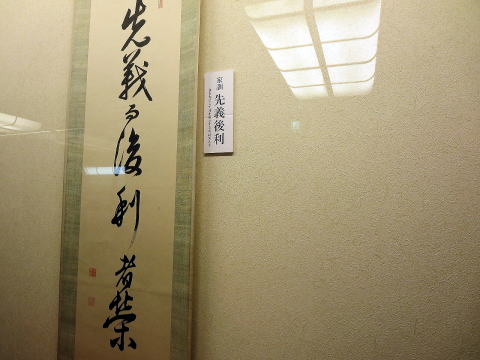 先義而後利者榮
家訓
先義後利